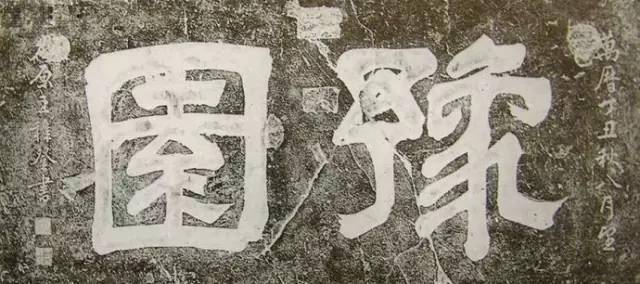 萬曆丁丑秋八月望
豫園
太原王穉登書